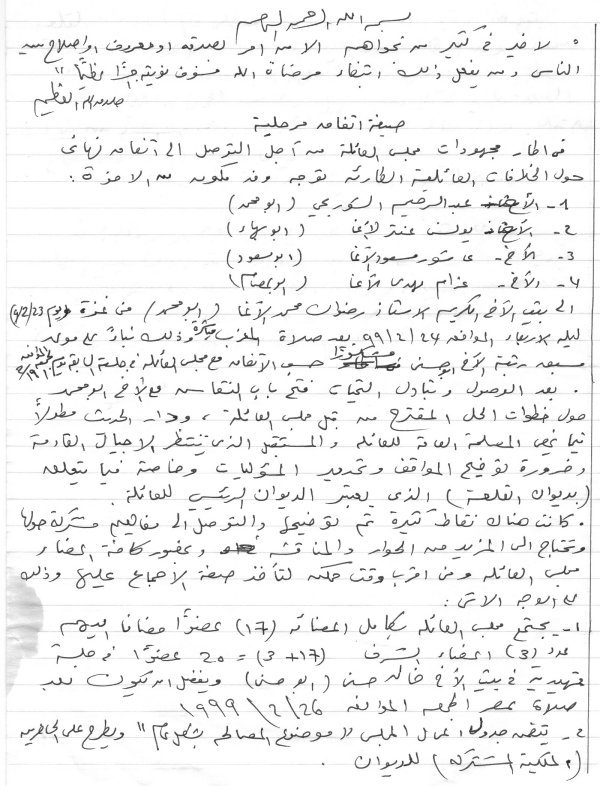 بسم الله الرحمن الرحيم
" لا خير في كثير من نجواهم إلا من أمر بصدقة أو معروف أو إصلاح بين
الناس ومن يفعل ذلك ابتغاء مرضاة الله فسوف نؤتيه أجرًا عظيمًا "
صدق الله العظيم
صيغة اتفاق مرحلية
في إطار مجهودات مجلس العائلة من أجل التوصل إلى اتفاق نهائي
حول الخلافات العائلية الطارئة توجه وفد مكون من الإخوة :
1- الأخ عبد الرحيم الشوربجي (أبو محمد)
2- الأخ يونس عنتر الأغا (أبو بهاء)
3- الأخ - عاشور مسعود الأغا (أبو مسعود)
4- الأخ - عزام مهدي الأغا
إلى بيت الأخ الكريم الأستاذ رضوان محمد الأغا (أبو محمد) في غزة يوم 23/2/
ليلة الأربعاء الموافق 24/2/99 بعد صلاة المغرب مباشرة وذلك بناءً على موعد
مسبق رتبه الأخ أبو حسن حسب الاتفاق مع مجلس العائلة في جلسة
. بعد الوصول وتبادل التحيات فتح باب النقاش مع الأخ أبو محمد
حول خطوات الحل المقترح من قبل مجلس العائلة ، ودار الحديث مطولاً
فيما يخص المصلحة العامة للعائلة والمستقبل الذي ينتظر الأجيال القادمة
وضرورة توضيح المواقف وتحديد المسؤليات وخاصة فيما يتعلق
(بديوان القلعة) الذي يعتبر الديوان الرئيسي للعائلة .
. كانت هناك نقاط كثيرة تم توضيحها والتوصل إلى مفاهيم مشتركة حولها
وتحتاج إلى المزيد من الحوار والمناقشة وبحضور كافة أعضاء
مجلس العائلة وفي أقرب وقت ممكن لتأخذ صفة الإجماع عليها وذلك
على الوجه الآتي :
1- يجتمع مجلس العائلة بكامل أعضائه (17) عضوًا مضافًا إليهم
عدد (3) أعضاء الشرف (17+3) = 20 عضوًا في جلسة
تمهيدية في بيت الأخ خالد حسن (أبو حسن) ويفضل أن تكون بعد
صلاة عصر الجمعة الموافق 26/2/1999
2- يتضمن جدول أعمال المجلس " موضوع المصالحة بشكل عام " ويطرح على الحاضرين
(الملكية المشتركة) للديوان .